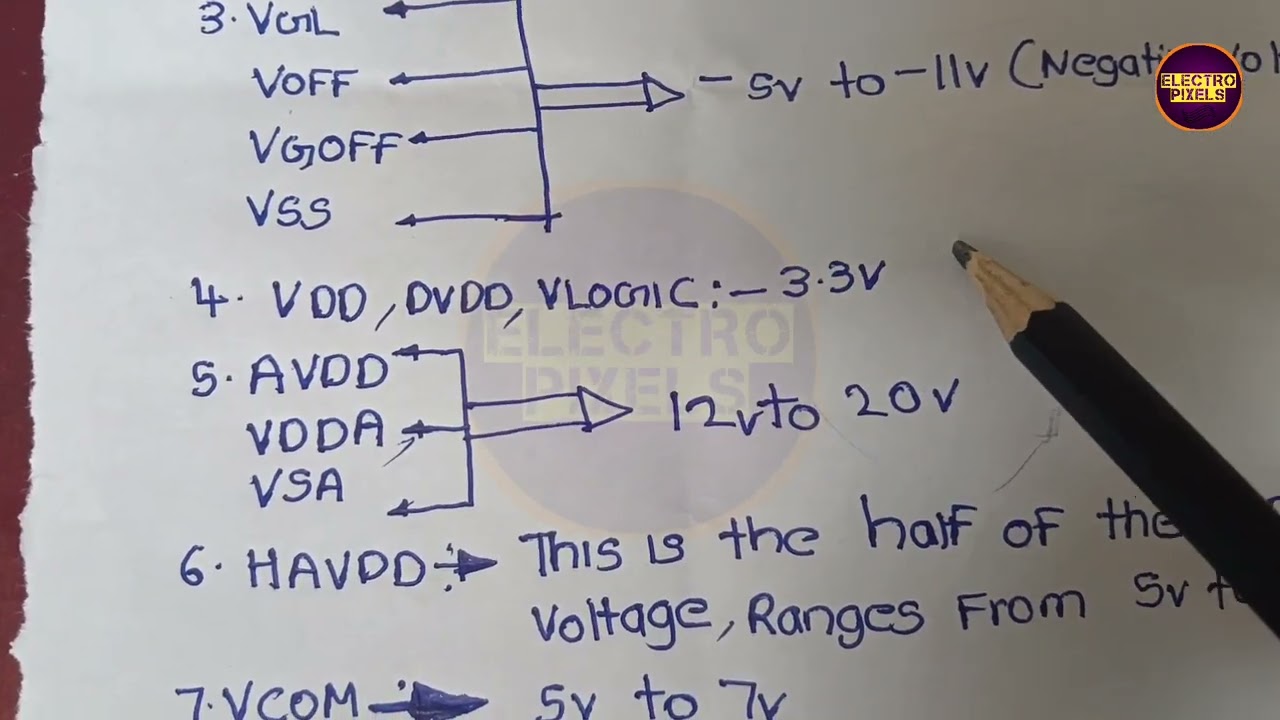 3. VGL
VOFF
VGOFF
VSS
-5V to -11V (Negati
ELECTRO
PIXELS
4. VDD, DVDD, VLOGIC:- 3.3V
ELECTRO
PIXELS
5. AVDD
VDDA
VSA
12V to 20V
6. HAVDD:→ This is the half of the
Voltage, Ranges From 5V
7. VCOM:→ 5V to 7V